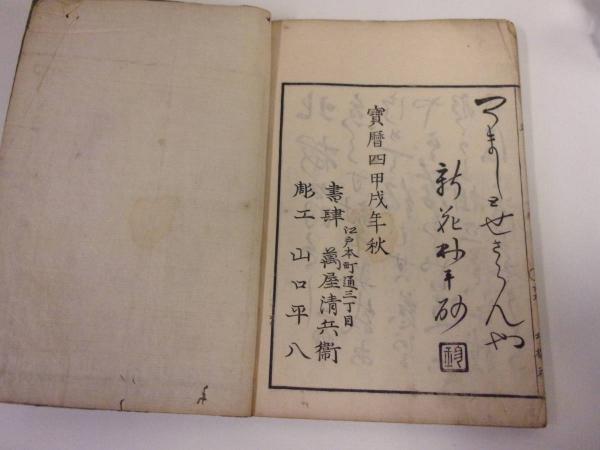 つましとせさらんや
新花林平砂
寶暦四甲戌年秋
江戸本町通三丁目
書肆 萬屋清兵衞
彫工 山口平八